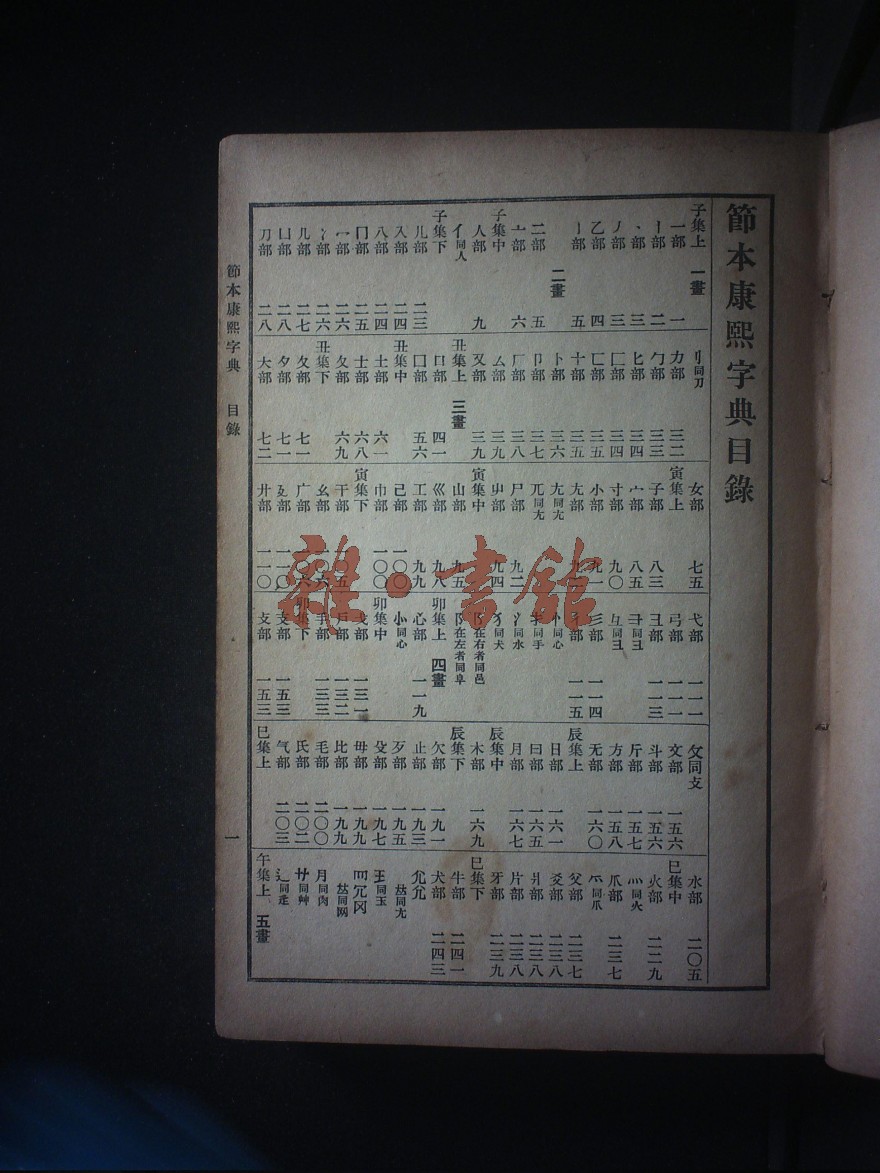 節本康熙字典目錄
子集上 一畫
一部 一
丨部 二
丶部 三
丿部 三
乙部 四
亅部 五
二畫
二部 五
亠部 六
子集中
人部 九
亻同人
子集下
儿部 二三
入部 二四
八部 二四
冂部 二五
冖部 二六
冫部 二六
几部 二七
凵部 二八
刀部 二八
刂同刀
力部 三二
勹部 三三
匕部 三四
匚部 三四
匸部 三五
十部 三五
卜部 三六
卩部 三七
厂部 三八
厶部 三九
又部 三九
丑集上 三畫
口部 四一
囗部 五六
丑集中
土部 六一
士部 六八
夂部 六九
丑集下
夊部 七一
夕部 七一
大部 七二
女部 七五
寅集上
子部 八三
宀部 八五
寸部 九〇
小部 九一
尢部
尣同尢
兀同尢
尸部 九二
屮部 九四
寅集中
山部 九五
巛部 九八
工部 九九
己部 一〇〇
巾部 一〇〇
寅集下
干部
幺部
广部
廴部 一一〇
廾部 一一〇
弋部 一一一
弓部 一一一
彐部 一一三
彑同彐
彡部 一一四
彳部 一一五
忄同心
扌同手
氵同水
犭同犬
阝在右者同邑
阝在左者同阜
卯集上 四畫
心部 一一九
㣺同心
卯集中
戈部 一三一
戶部 一三二
手部 一三三
卯集下
支部 一五三
攴部 一五三
攵同攴
文部 一五六
斗部 一五六
斤部 一五七
方部 一五八
无部 一六〇
辰集上
日部 一六一
曰部 一六五
月部 一六七
辰集中
木部 一六九
辰集下
欠部 一九一
止部 一九三
歹部 一九五
殳部 一九七
毋部 一九九
比部 一九九
毛部 二〇〇
氏部 二〇二
气部 二〇三
巳集上
水部 二〇五
巳集中
火部 二二九
灬同火
爪部 二三七
爫同爪
父部 二三七
爻部 二三八
爿部 二三八
片部 二三八
牙部 二三九
巳集下
牛部 二四一
犬部 二四三
尣尢 𠀤同尢
王同玉
罒𠔿𦉰 𠀤同网
月同肉
艹同艸
辶同辵
午集上 五畫
節本康熙字典 目錄 一
雜·書館